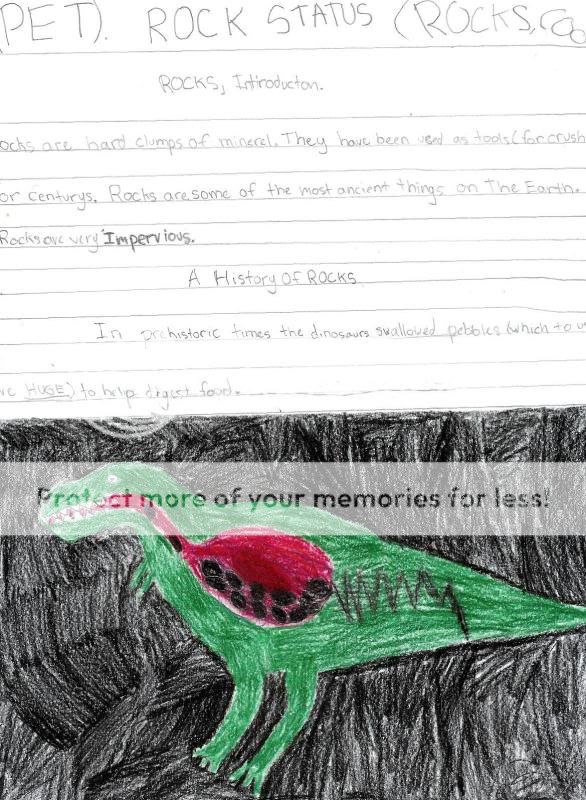 PET). ROCK STATUS (ROCKS,
ROCKS, Introducton.
ocks are hard clumps of mineral. They have been used as tools (for crush
or centurys. Rocks are some of the most ancient things on The Earth.
Rocks are very Impervious.
A History of ROCKS
In prehistoric times the dinosaurs swallowed pebbles (which to u
re HUGE) to help digest food.
Protect more of your memories for less!